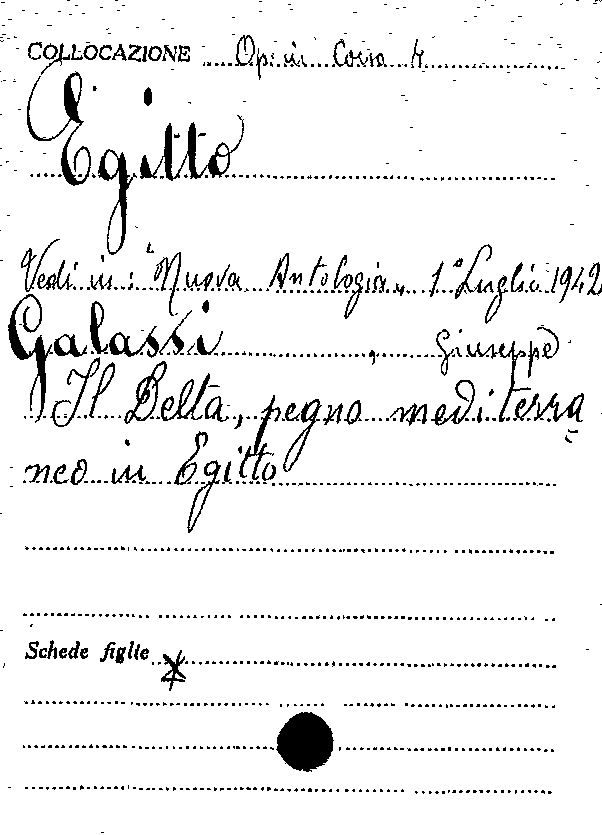 COLLOCAZIONE Op. in Corso 4
Egitto
Vedi in: "Nuova Antologia„ 1° Luglio 1942
Galassi, Giuseppe
Il Delta, pegno mediterra=
neo in Egitto
Schede figlie